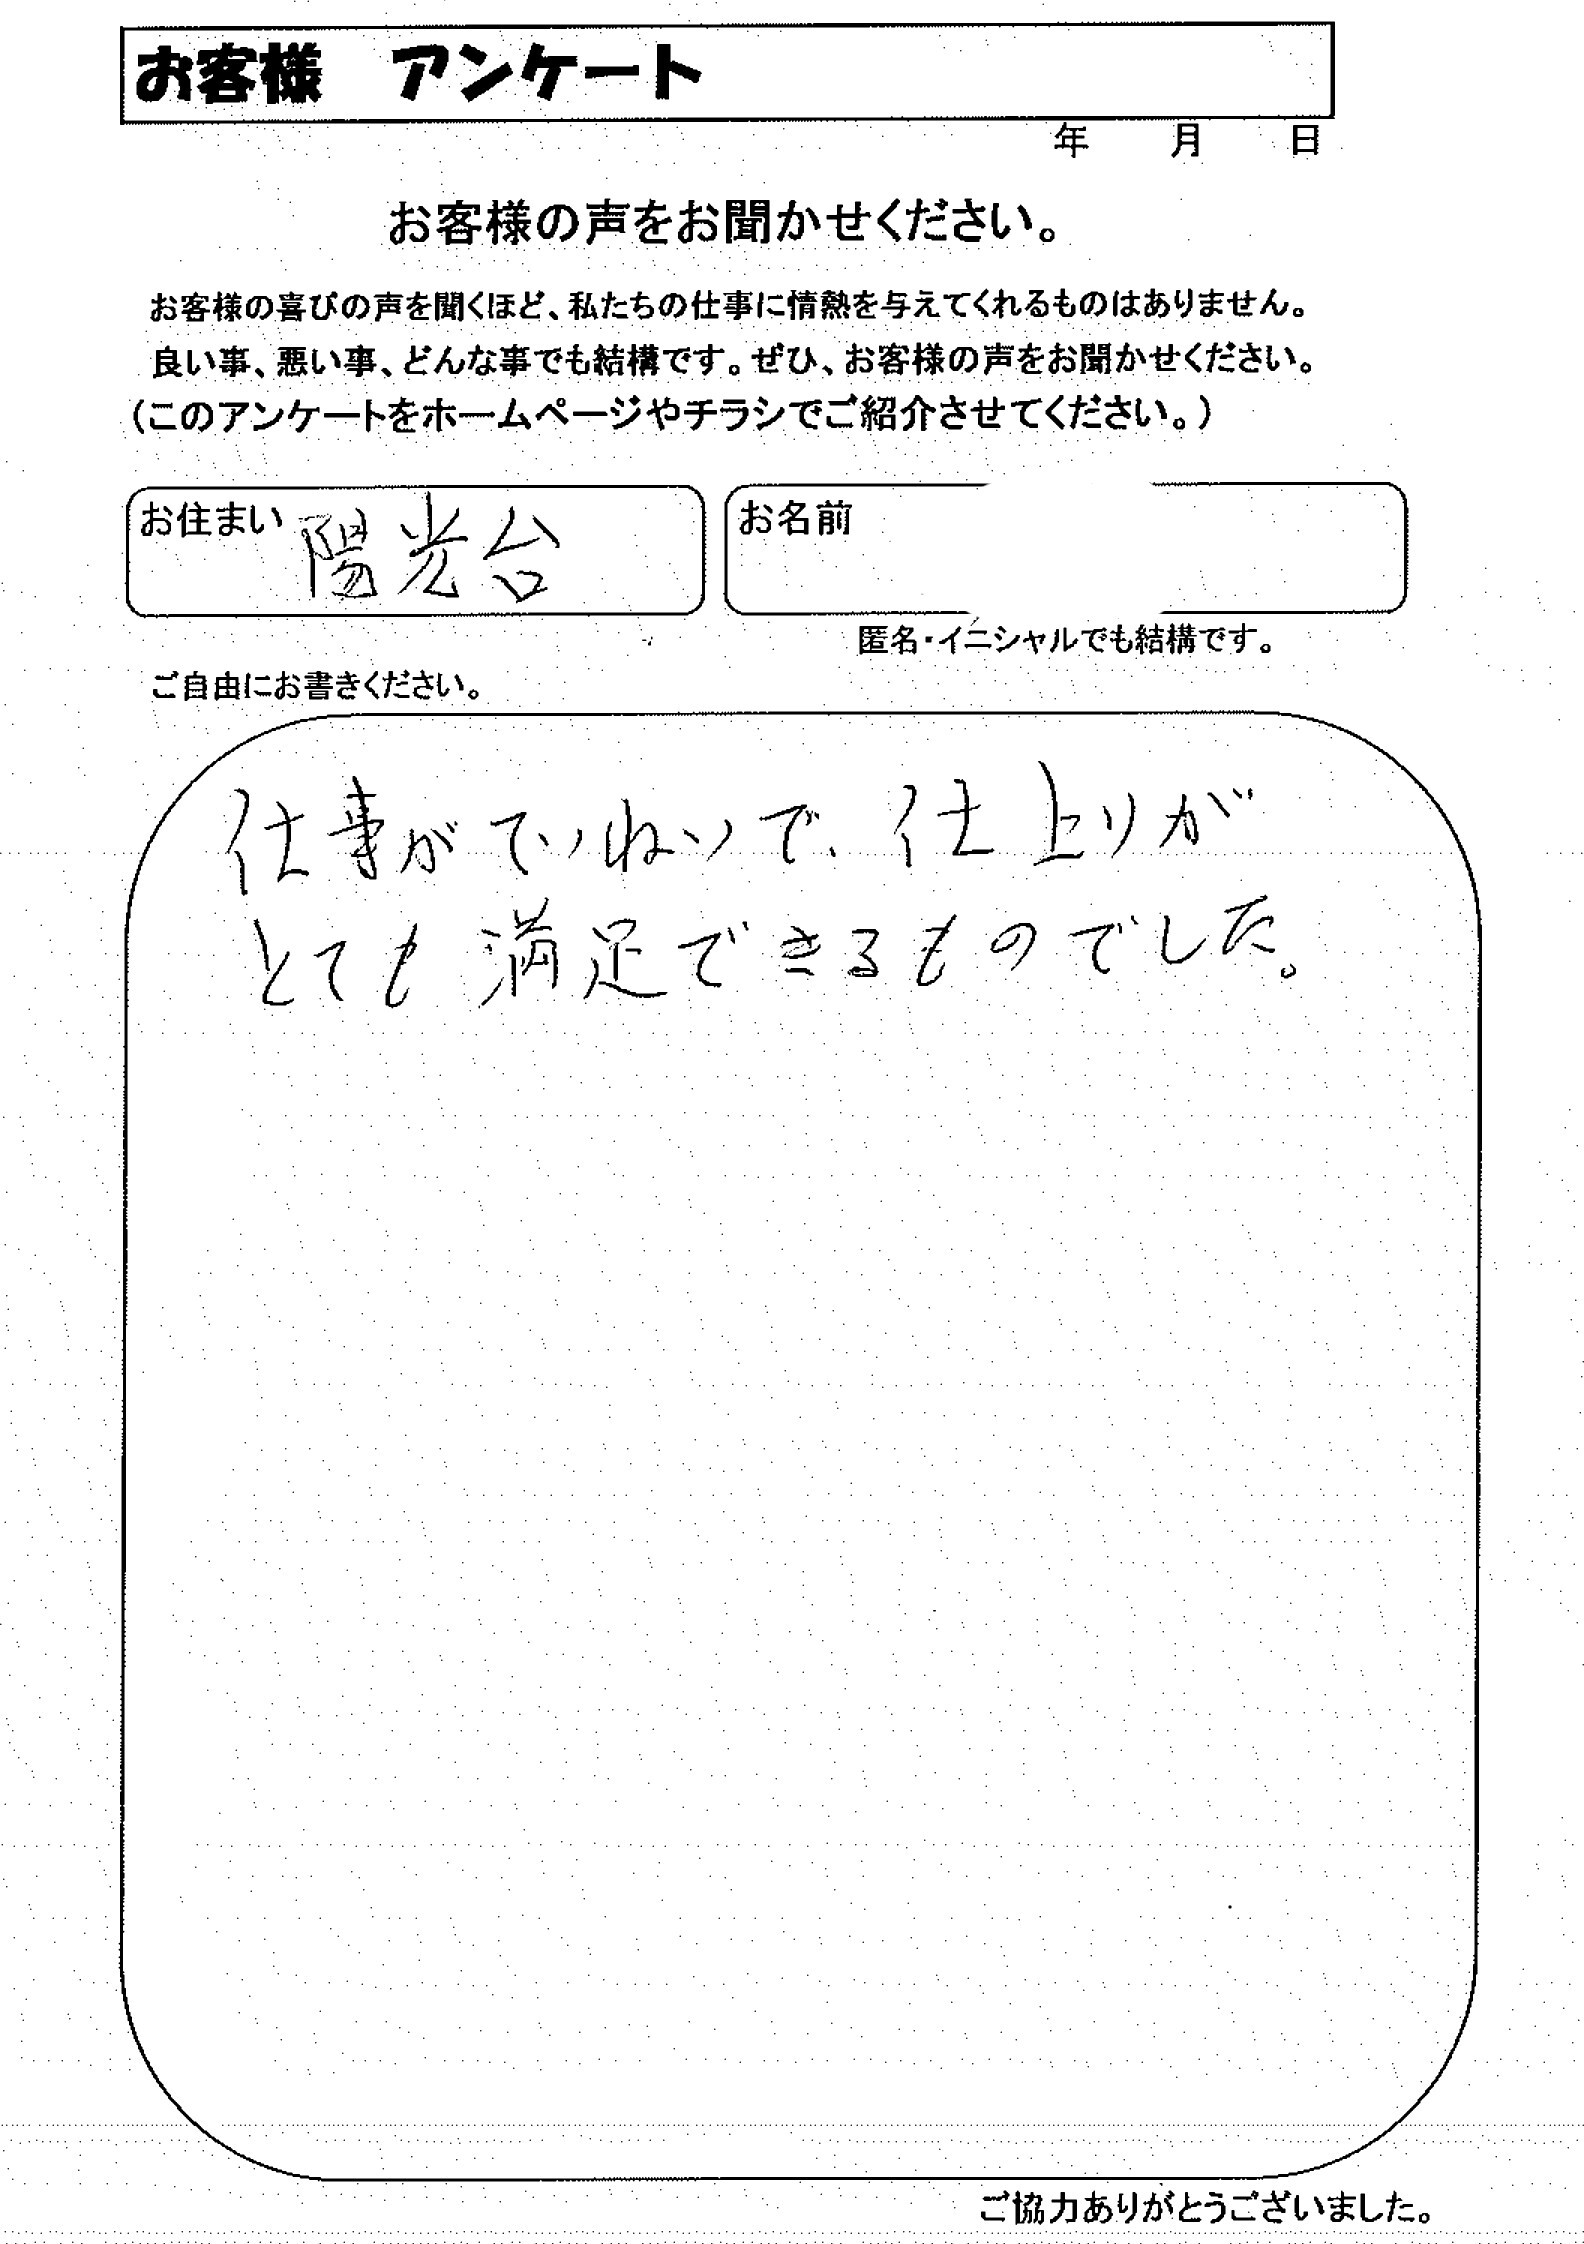 お客様　アンケート
年　月　日
お客様の声をお聞かせください。
お客様の喜びの声を聞くほど、私たちの仕事に情熱を与えてくれるものはありません。
良い事、悪い事、どんな事でも結構です。ぜひ、お客様の声をお聞かせください。
（このアンケートをホームページやチラシでご紹介させてください。）
お住まい 陽光台
お名前
匿名・イニシャルでも結構です。
ご自由にお書きください。
仕事がていねいで、仕上りが
とても満足できるものでした。
ご協力ありがとうございました。